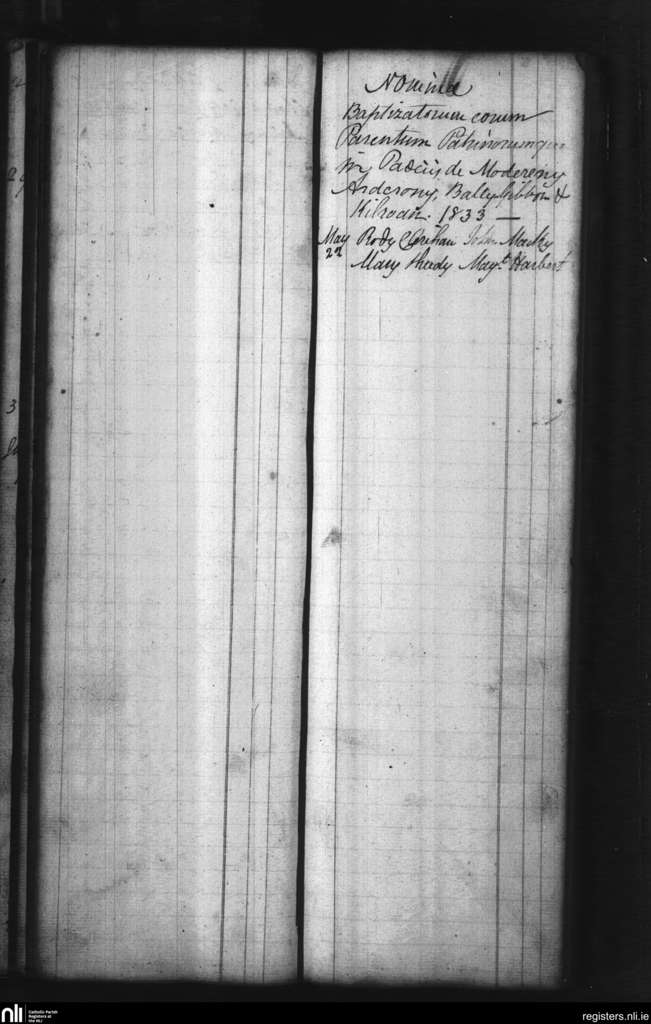 Nomina
Baptizatorum eorum
Parentum Patrinorumque
in Paociis de Modereny
Ardcrony, Ballygibbon &
Kilroan. 1833 —
May Rody John Macky
22 Mary Heedy Mayt. Harbert
3
nli Catholic Parish
Registers at
the NLI
registers.nli.ie